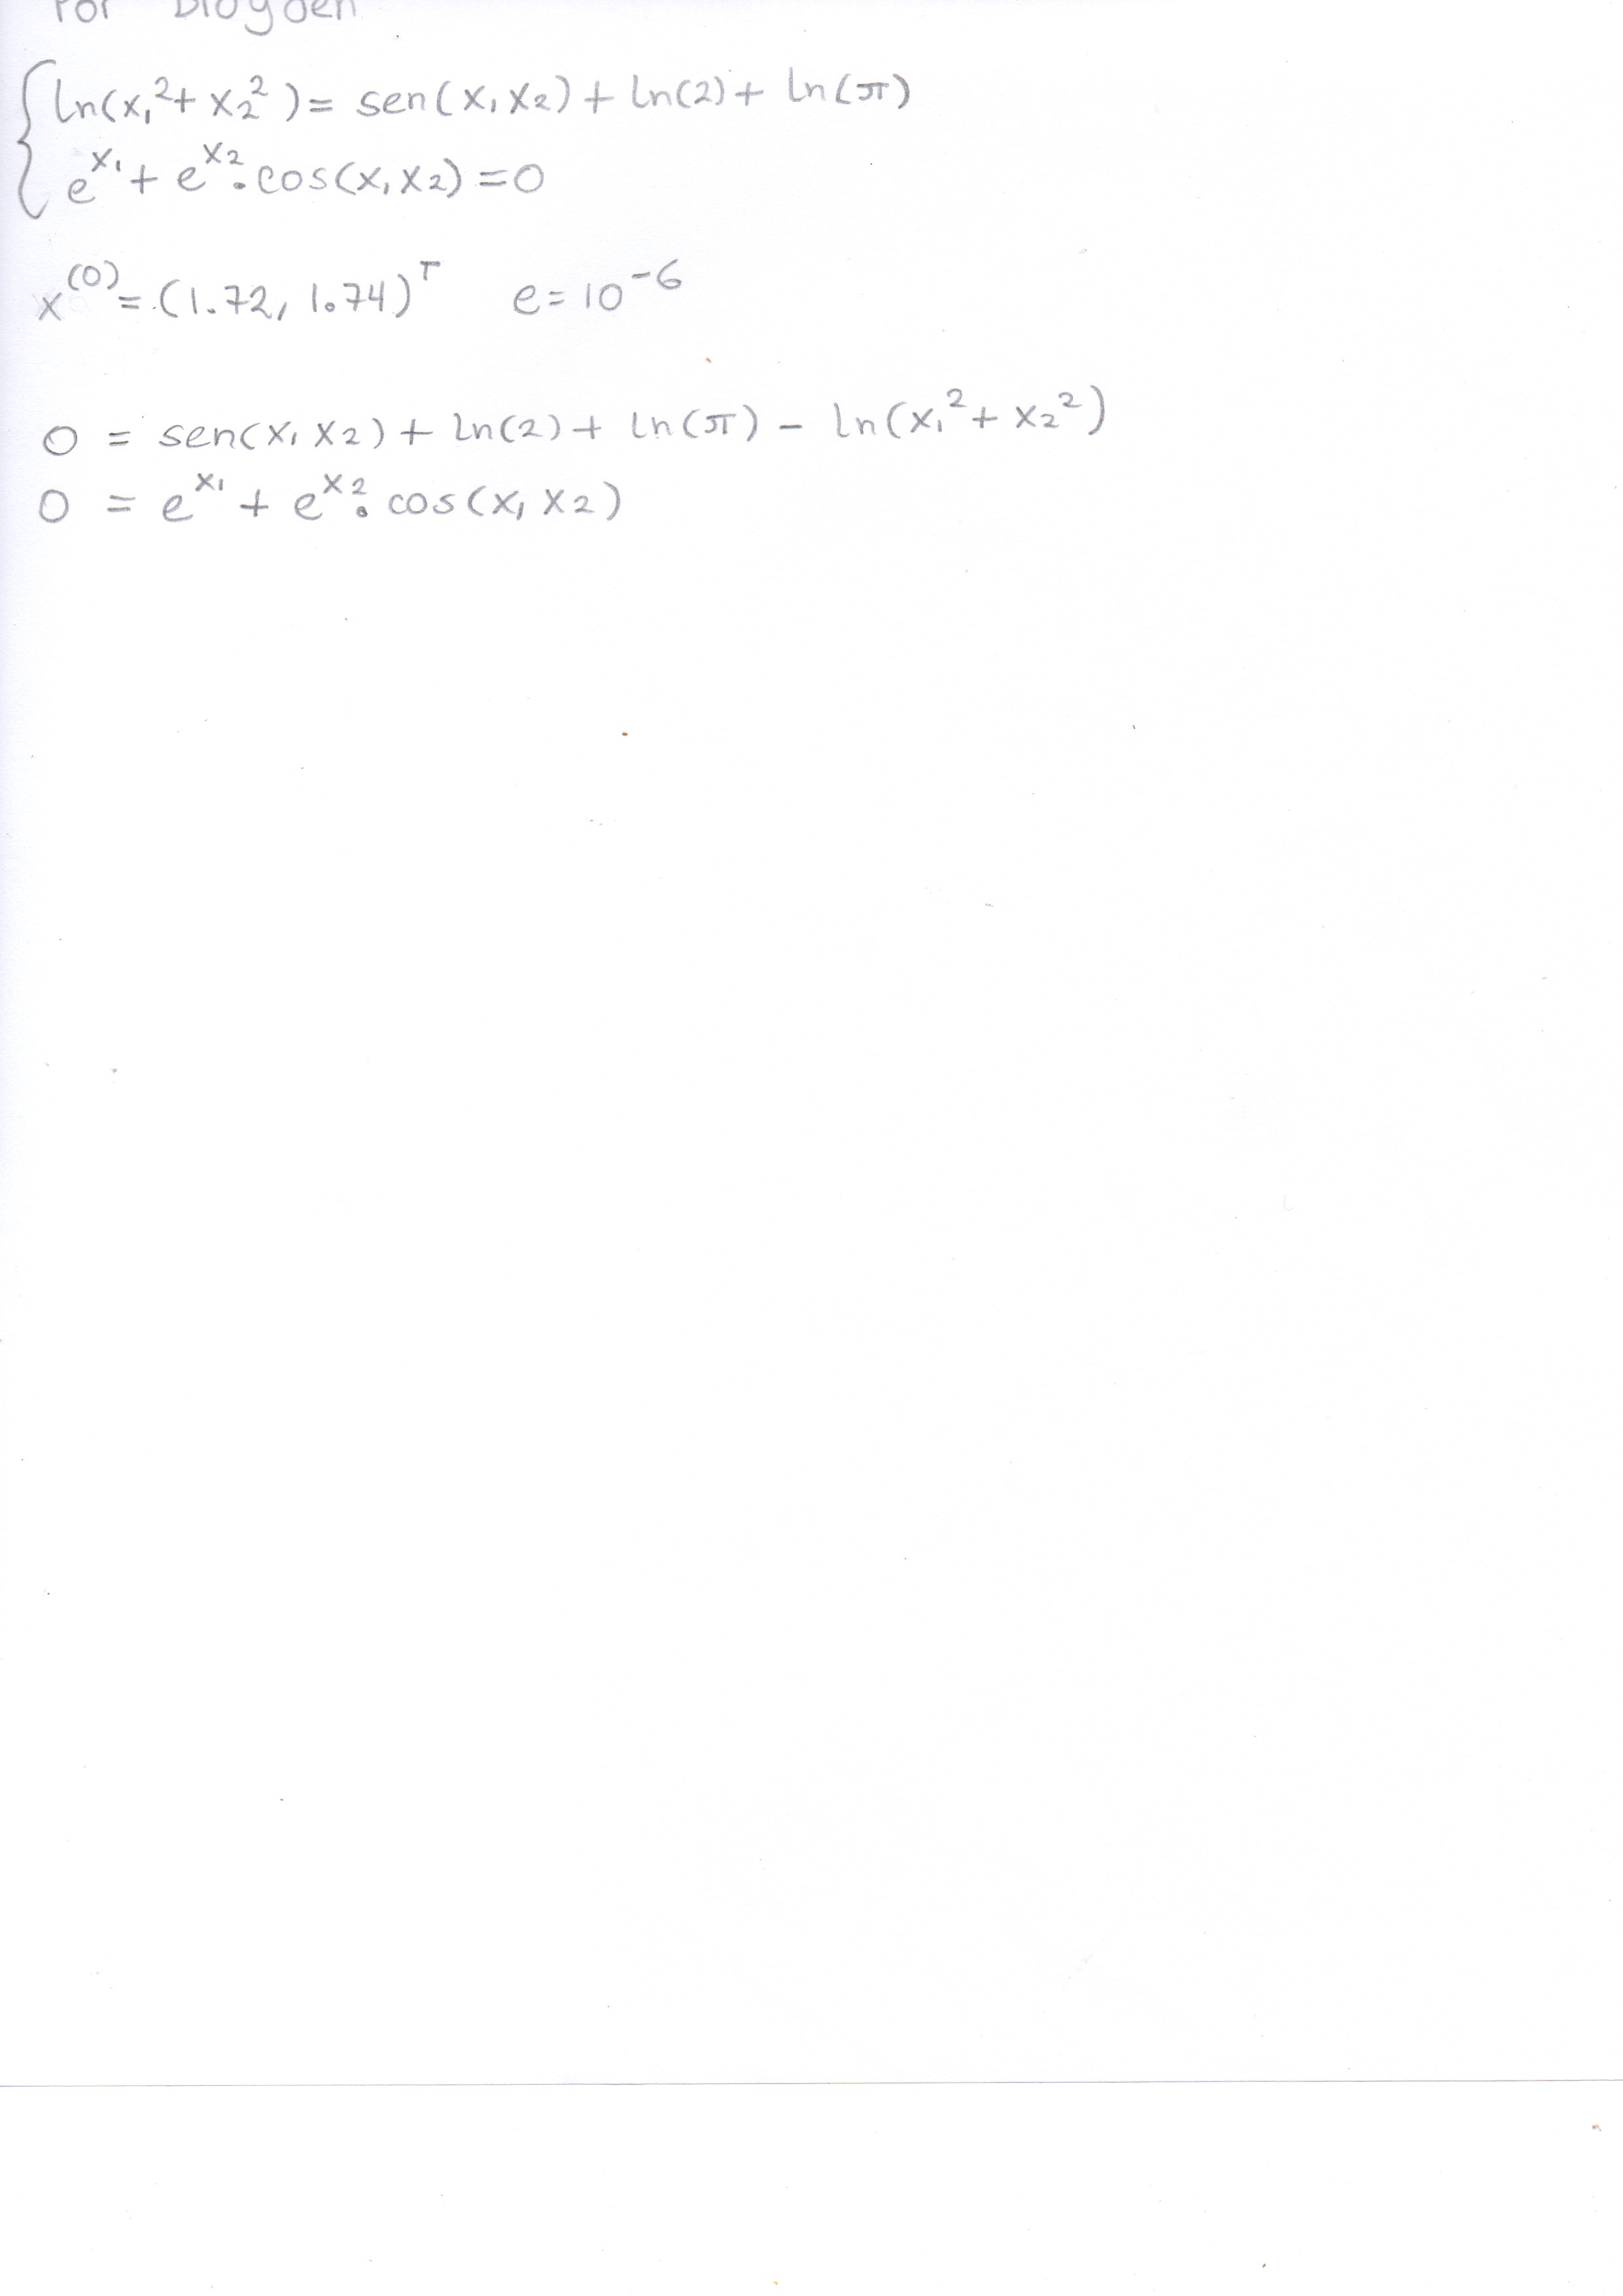 Por Broyden
ln(x₁²+ x₂²)= sen(x₁x₂)+ ln(2)+ ln(π)
e^x₁+ e^x₂.cos(x₁x₂)=0
x^(0)=(1.72, 1.74)^T e=10^-6
0 = sen(x₁x₂)+ ln(2)+ ln(π) - ln(x₁²+ x₂²)
0 = e^x₁ + e^x₂.cos(x₁x₂)